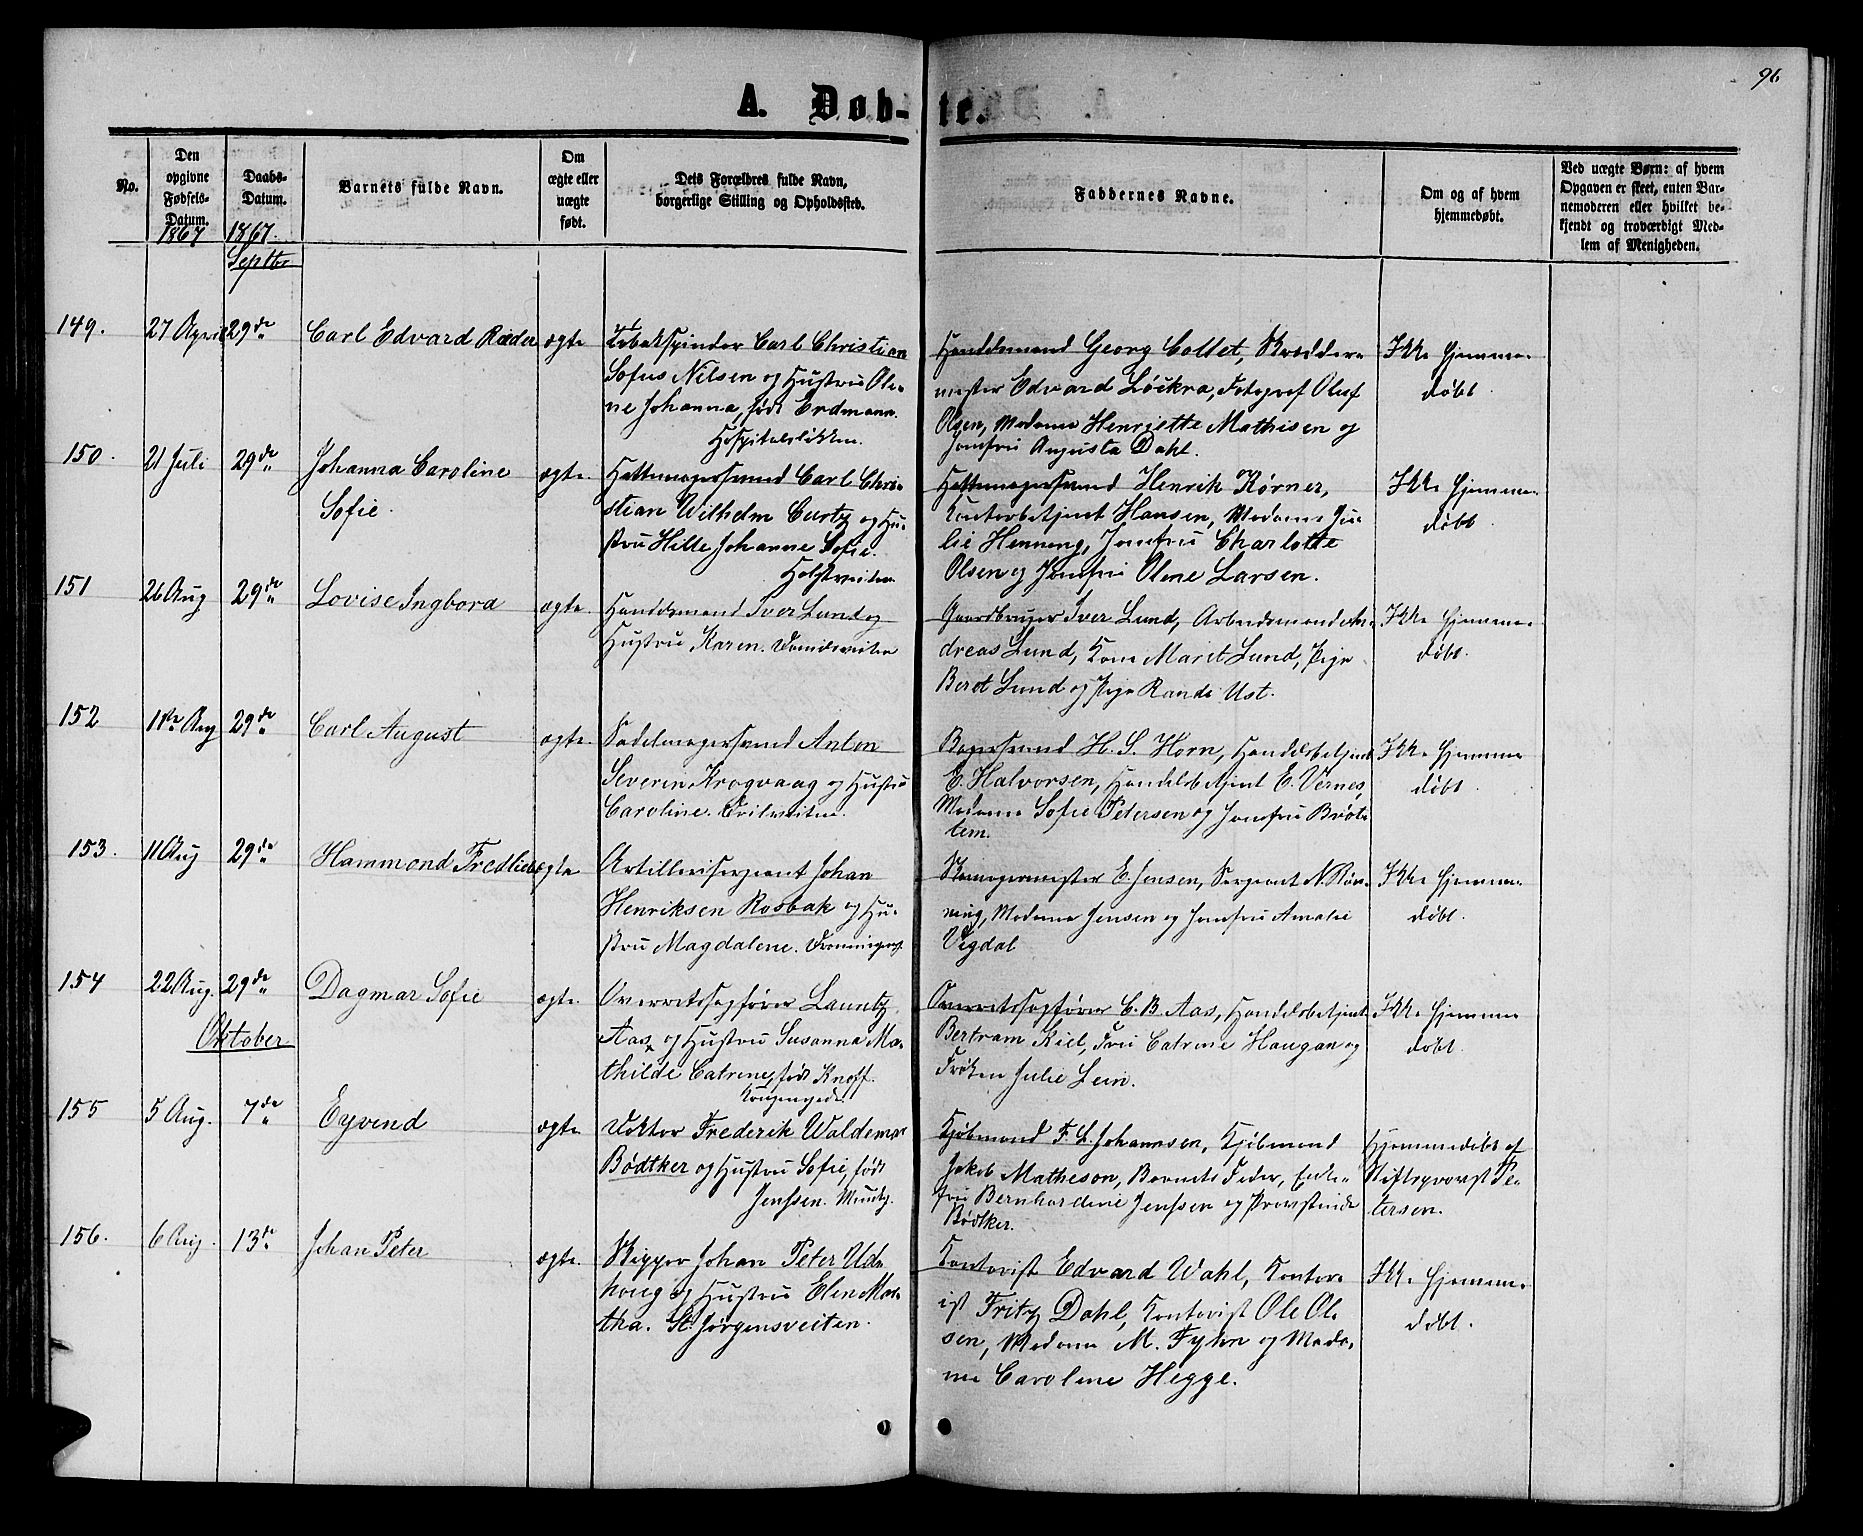 96
A. Døb-te.
No.
Den opgivne Fødsels-Datum.
Daabs-Datum.
Barnets fulde Navn.
Om ægte eller uægte født.
Dets Forældres fulde Navn, borgerlige Stilling og Opholdssted.
Faddernes Navne.
Om og af hvem hjemmedøbt.
Ved uægte Børn: af hvem Opgaven er skeet, enten Barnemoderen eller hvilket bekjendt og troværdigt Medlem af Menigheden.
1867 1867.
Septbr
149. 27 April 29de Carl Edvard Ræder ægte Tobakspinder Carl Christian
Sofus Nilsen og Hustru Ole-
ne Johanna, født Erdmann.
Hospitalsløkken.
Handelsmand Georg Collet, Skrædder-
mester Edvard Løckra, Fotograf Oluf
Olsen, Madame Henriette Mathisen og
Jomfru Augusta Dahl.
Ikke hjemme-
døbt
150. 21 Juli 29de Johanna Caroline
Sofie.
ægte. Hattemagersvend Carl Chri-
stian Wilhelm Curtz og Hu-
stru Hille Johanne Sofie.
Holstveiten
Hattemagersvend Henrik Kørner,
Kontorbetjent Hansen, Madame Ju-
lie Henneng, Jomfru Charlotte
Olsen og Jomfru Olene Larsen.
Ikke hjemme-
døbt
151 26 Aug 29de Lovise Ingbora ægte. Handelsmand Iver Lund og
Hustru Karen. Danielsveiten
Gaardbruger Iver Lund, Arbeidsmand An-
dreas Lund, Kone Marit Lund, Pige
Berot Lund og Pige Randi Ust.
Ikke hjemme-
døbt.
152 1ste Aug 29de Carl August ægte. Sadelmagersvend Anton
Severin Krogvaag og Hustru
Caroline.
Bagersvend H. S. Horn, Handelsbetjent
E. Halvorsen, Handelsbetjent E. Vernes,
Madame Sofie Petersen og Jomfru Brøt-
tem.
Ikke hjemme
døbt
153. 11 Aug 29de Hammond Fredlieb ægte Artillerisergeant Johan
Henriksen Rosbak og Hu-
stru Magdalene. Dronningensgt
E. Jensen, Sergeant N. Røn-
ning, Madame Jensen og Jomfru Amalie
Vigdal
Ikke hjemme-
døbt.
154 22 Aug. 29de Dagmar Sofie ægte. Overretssagfører Lauritz
Aas og Hustru Susanna Ma-
thilde Catrine, født Knoff.
Kongensgade
Overretssagfører C. B. Aas, Handelsbetjent
Bertram Kiel, Fru Catrine Haugan og
Frøken Julie Lein.
Ikke hjemme
døbt.
Oktober
155 5 Aug. 7de Eyvind ægte. Doktor Frederik Waldemar
Bødtker og Hustru Sofie, født
Jenssen. Munkg.
Kjøbmand F. L. Johannsen, Kjøbmand
Jakob Matheson, Barnets Fader, Enke-
fru Bernhardine Jenssen og Provstinde
Bødtker.
Hjemmedøbt af
Stiftsprovst Pe-
tersen.
156. 6 Aug. 13de Johan Peter ægte. Skipper Johan Peter Ud-
houg og Hustru Elen Mar-
tha. St. Jørgensveiten.
Kontorist Edvard Wahl, Kontor-
ist Fritz Dahl, Kontorist Ole Ol-
sen, Madame M. Fyhn og Mada-
me Caroline Hegge.
Ikke hjemme-
døbt.